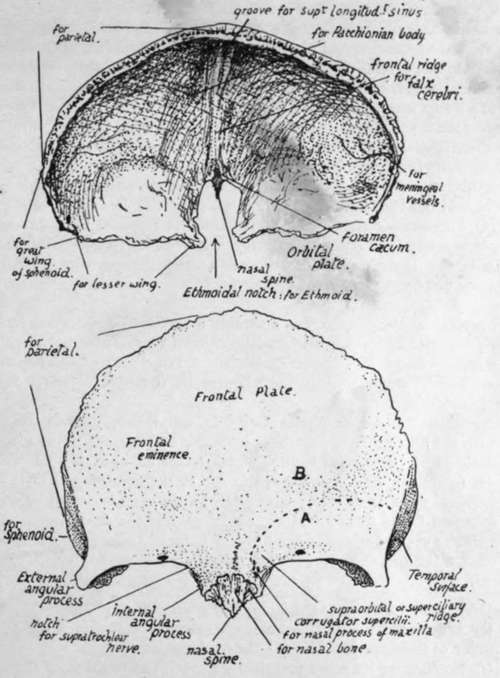 groove for supr longitudl sinus
for
parietal.
for Pacchionian body
frontal ridge
for falx
cerebri.
for
meningeal
vessels.
for
great
wing
of sphenoid.
for lesser wing.
foramen
cæcum.
Orbital
plate.
nasal
spine.
Ethmoidal notch: for Ethmoid.
for
parietal.
Frontal Plate.
Frontal
eminence.
B
A
for
Sphenoid.
External
angular
process
notch
for supratrochlear
nerve.
internal
angular
process
nasal
spine.
Temporal
surface.
supraorbital or superciliary
ridge.
corrugator supercilii.
for nasal process of maxilla
for nasal bone.